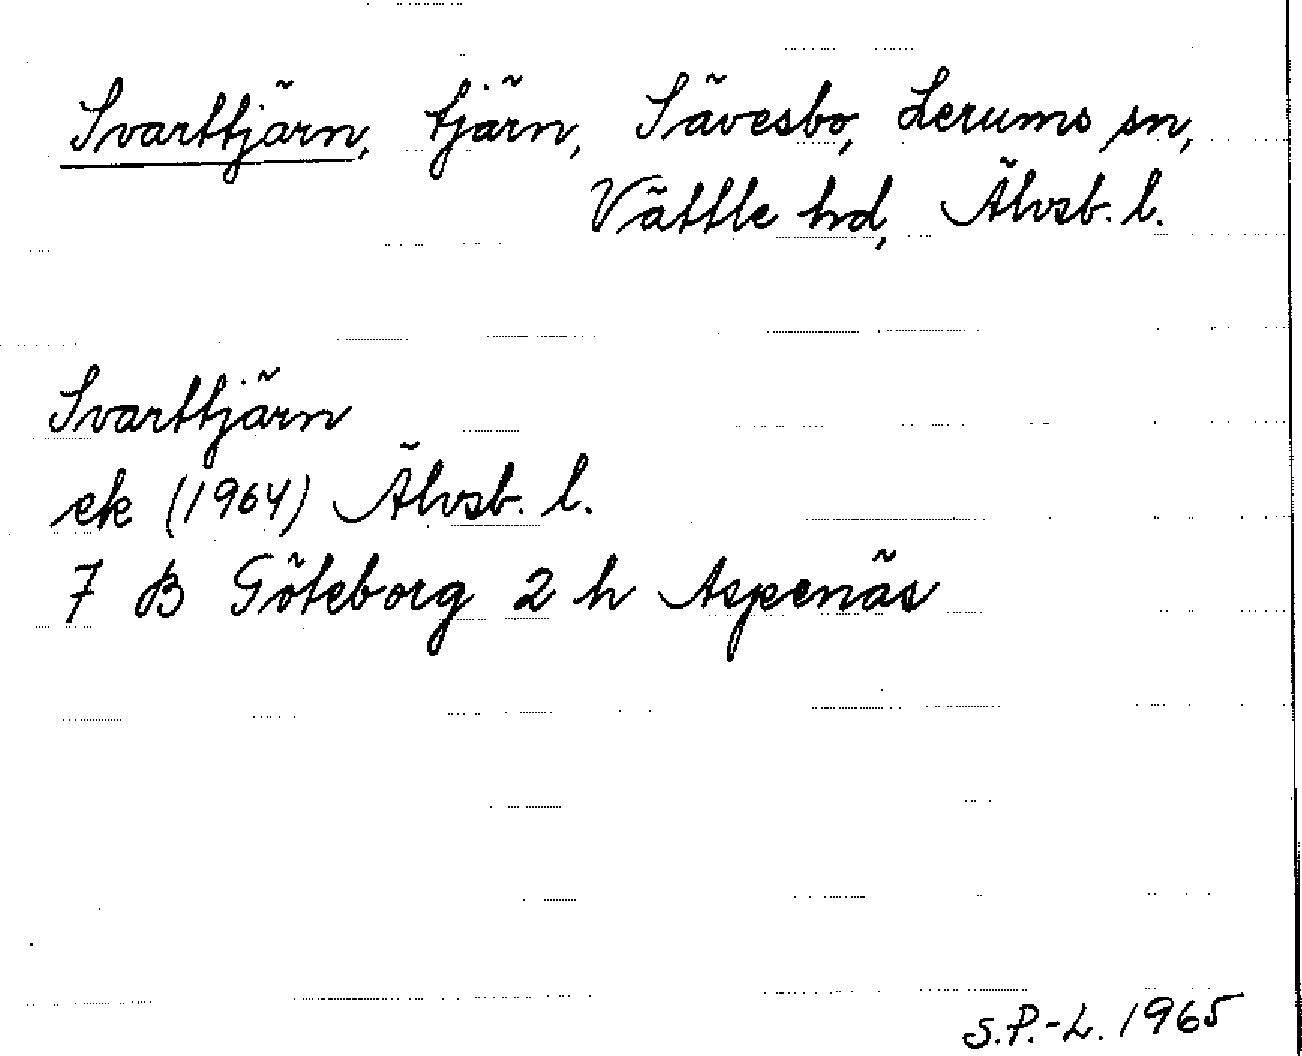 Svarttjärn, tjärn, Sävesbo, Lerums sn,
Vättle hd, Älvsb. l.
Svarttjärn
ek (1964) Älvsb. l.
7 B Göteborg 2 h Aspenäs
S.P.-L. 1965